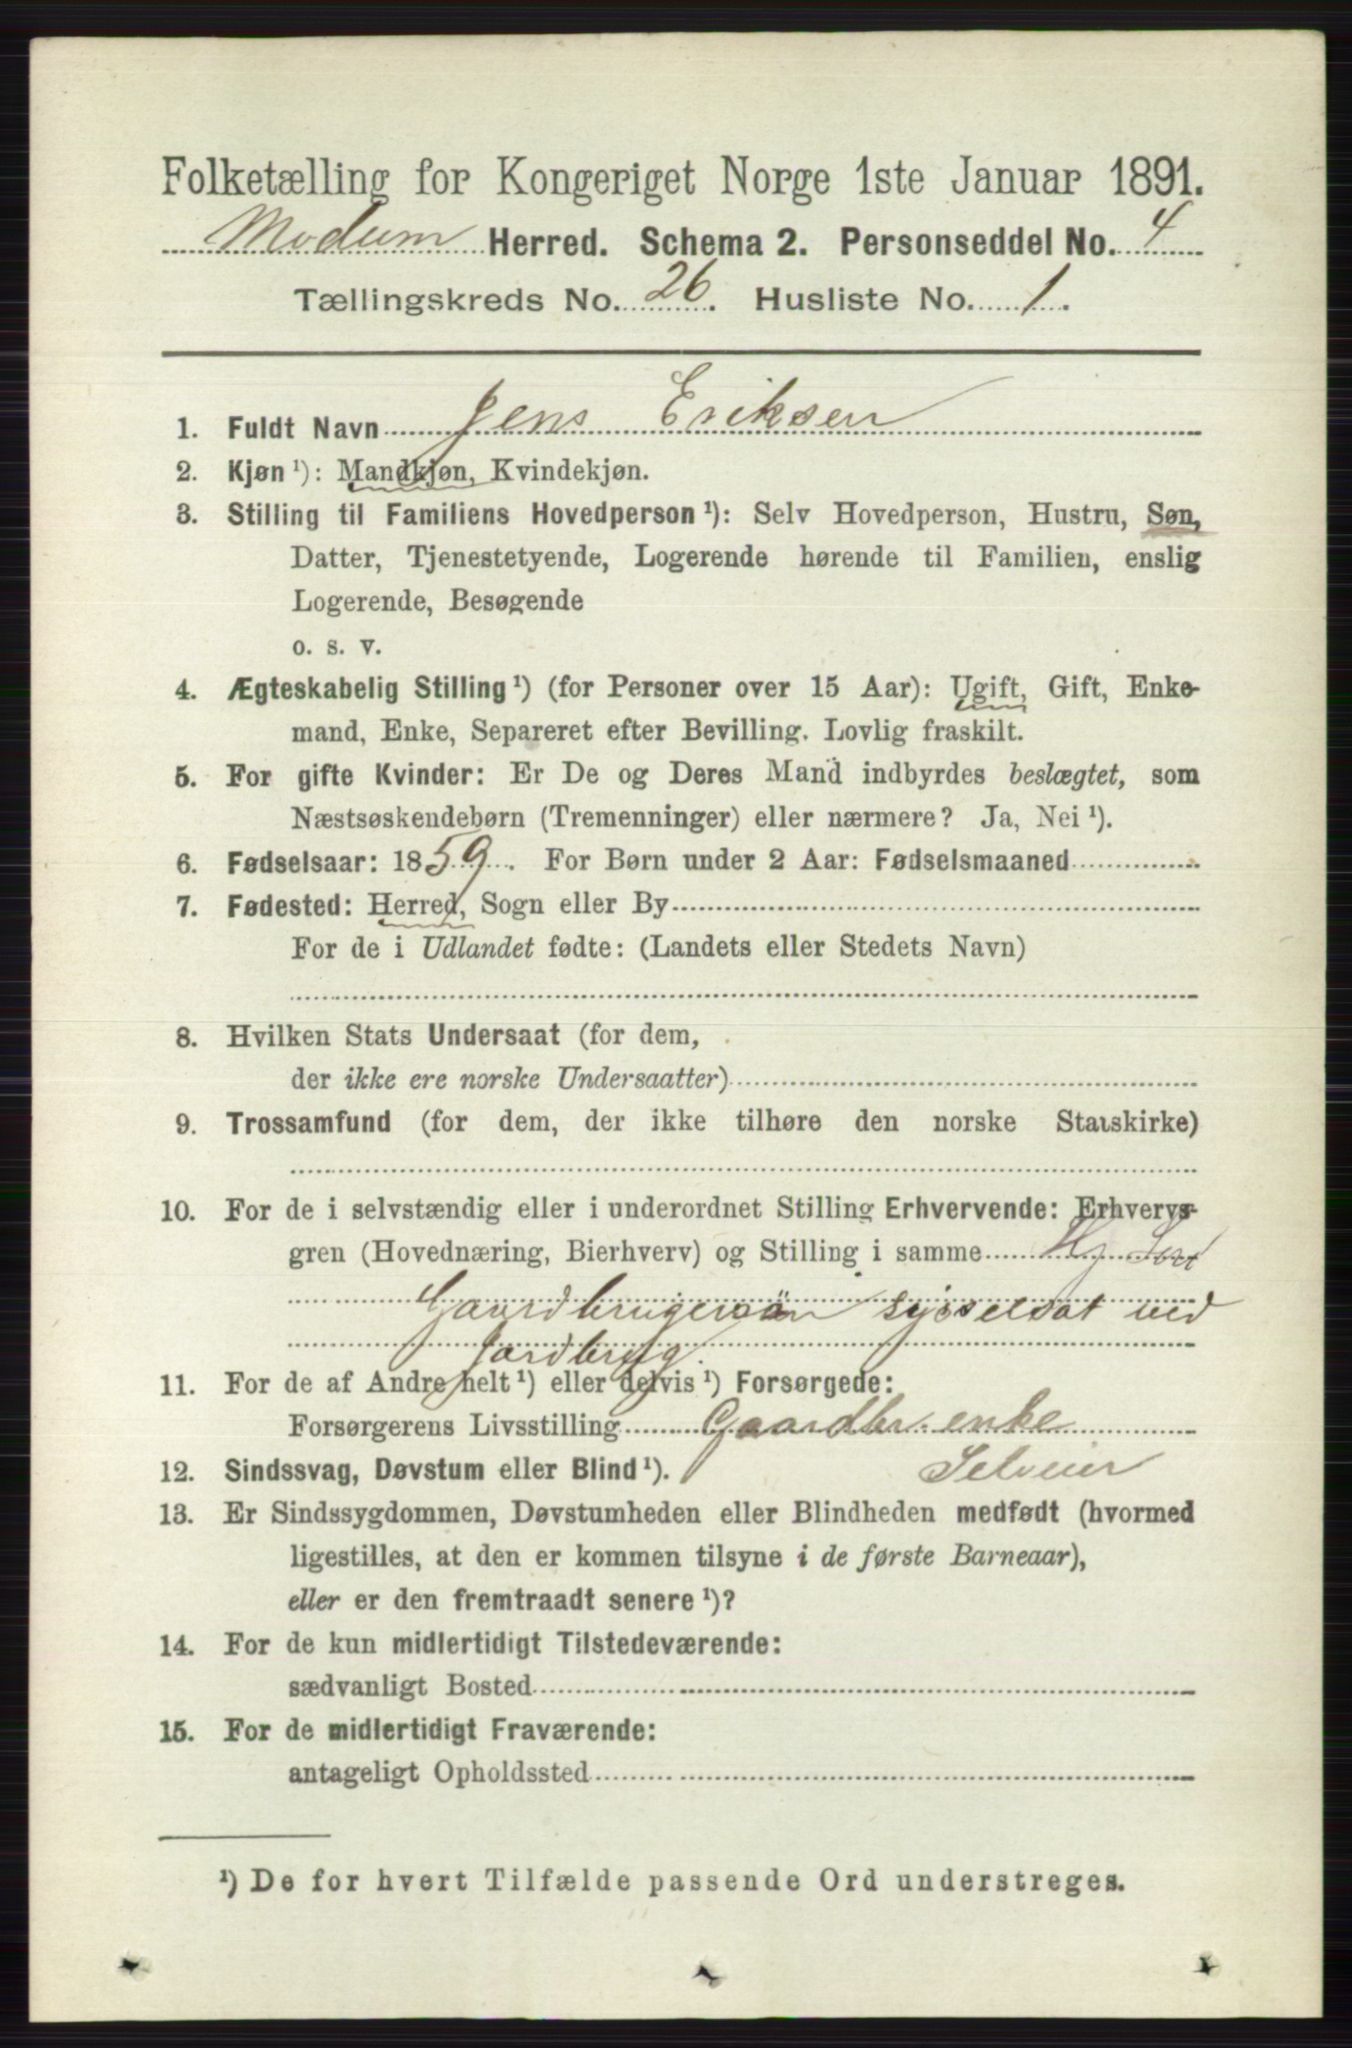 Folketælling for Kongeriget Norge 1ste Januar 1891.
Modum Herred. Schema 2. Personseddel No. 4
Tællingskreds No. 26. Husliste No. 1.
1. Fuldt Navn Jens Eriksen
2. Kjøn ¹): Mandkjøn, Kvindekjøn.
3. Stilling til Familiens Hovedperson ¹): Selv Hovedperson, Hustru, Søn,
Datter, Tjenestetyende, Logerende hørende til Familien, enslig
Logerende, Besøgende
o. s. v.
4. Ægteskabelig Stilling ¹) (for Personer over 15 Aar): Ugift, Gift, Enke-
mand, Enke, Separeret efter Bevilling. Lovlig fraskilt.
5. For gifte Kvinder: Er De og Deres Mand indbyrdes beslægtet, som
Næstsøskendebørn (Tremenninger) eller nærmere? Ja, Nei ¹).
6. Fødselsaar: 1859. For Børn under 2 Aar: Fødselsmaaned
7. Fødested: Herred, Sogn eller By
For de i Udlandet fødte: (Landets eller Stedets Navn)
8. Hvilken Stats Undersaat (for dem,
der ikke ere norske Undersaatter)
9. Trossamfund (for dem, der ikke tilhøre den norske Statskirke)
10. For de i selvstændig eller i underordnet Stilling Erhvervende: Erhvervs-
gren (Hovednæring, Bierhverv) og Stilling i samme Hj
Gaardbrugersön sysselsat ved
Jordbrug.
11. For de af Andre helt ¹) eller delvis ¹) Forsørgede:
Forsørgerens Livsstilling Gaardbr. enke
12. Sindssvag, Døvstum eller Blind ¹). Selveier
13. Er Sindssygdommen, Døvstumheden eller Blindheden medfødt (hvormed
ligestilles, at den er kommen tilsyne i de første Barneaar),
eller er den fremtraadt senere ¹)?
14. For de kun midlertidigt Tilstedeværende:
sædvanligt Bosted
15. For de midlertidigt Fraværende:
antageligt Opholdssted
¹) De for hvert Tilfælde passende Ord understreges.